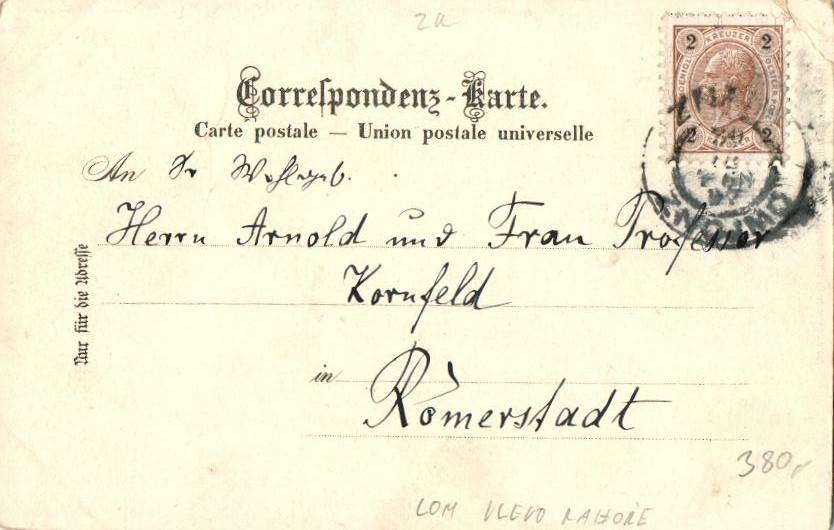 2a
2 KREUZER 2
2 2
Correspondenz-Karte.
Carte postale — Union postale universelle
An Sr Wohlgeb.
Herrn Arnold und Frau Professor
Kornfeld
in Römerstadt
Nur für die Adresse
380,-
LOM VLEVO NAHOŘE